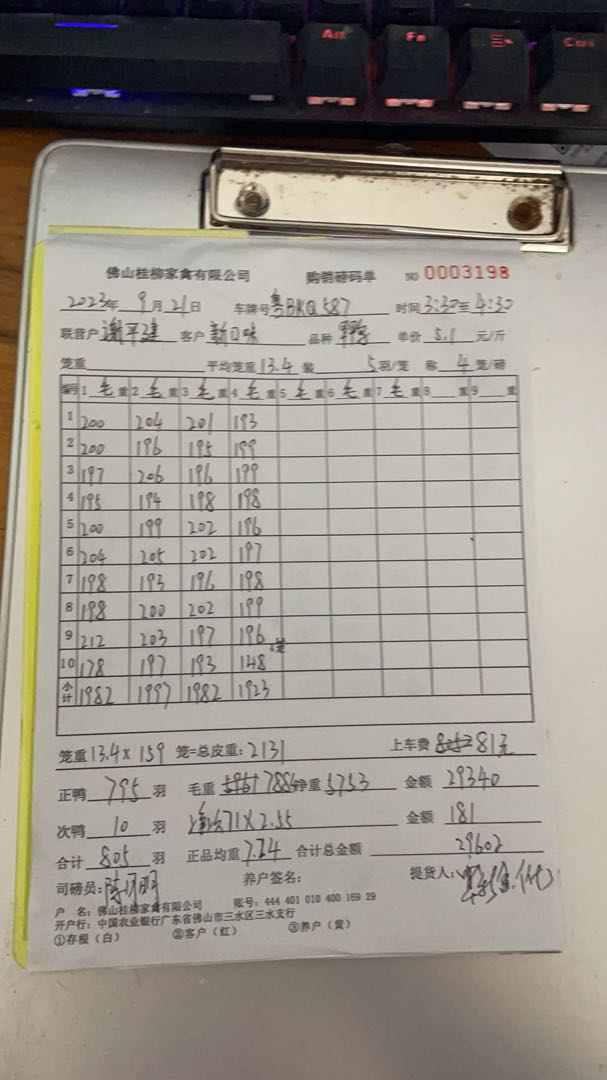 Alt Fn Ctrl
佛山桂柳家禽有限公司 购销磅码单 NO 0003198
2023年 9月 21日 车牌号 粤BKQ587 时间 3:30至4:30
联营户 谢平建 客户 新口味 品种 单价 5.1 元/斤
笼重 平均笼重 13.4 装 5 羽/笼 称 4 笼/磅
编号 1 毛重 2 毛重 3 毛重 4 毛重 5 毛重 6 毛重 7 毛重 8 重 9 重
1 200 204 201 193
2 200 196 195 199
3 197 206 196 199
4 195 194 198 198
5 200 199 202 196
6 204 205 202 197
7 198 193 196 198
8 198 200 202 199
9 212 203 197 196
10 178 197 193 148
小计 1982 1997 1982 1923
笼重 13.4×159 笼=总皮重: 2131 上车费 81元
正鸭 795 羽 毛重 7884 净重 5753 金额 29340
次鸭 10 羽 71×2.55 金额 181
合计 805 羽 正品均重 7.24 合计总金额 29602
司磅员: 养户签名: 提货人:
户 名: 佛山桂柳家禽有限公司 账号: 444 401 010 400 169 29
开户行: 中国农业银行广东省佛山市三水区三水支行
①存根（白） ②客户（红） ③养户（黄）